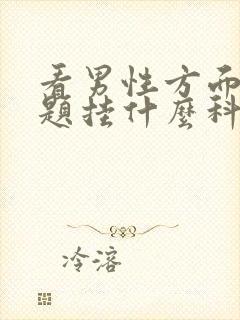 看男性方面
題挂什麼科
冷溶